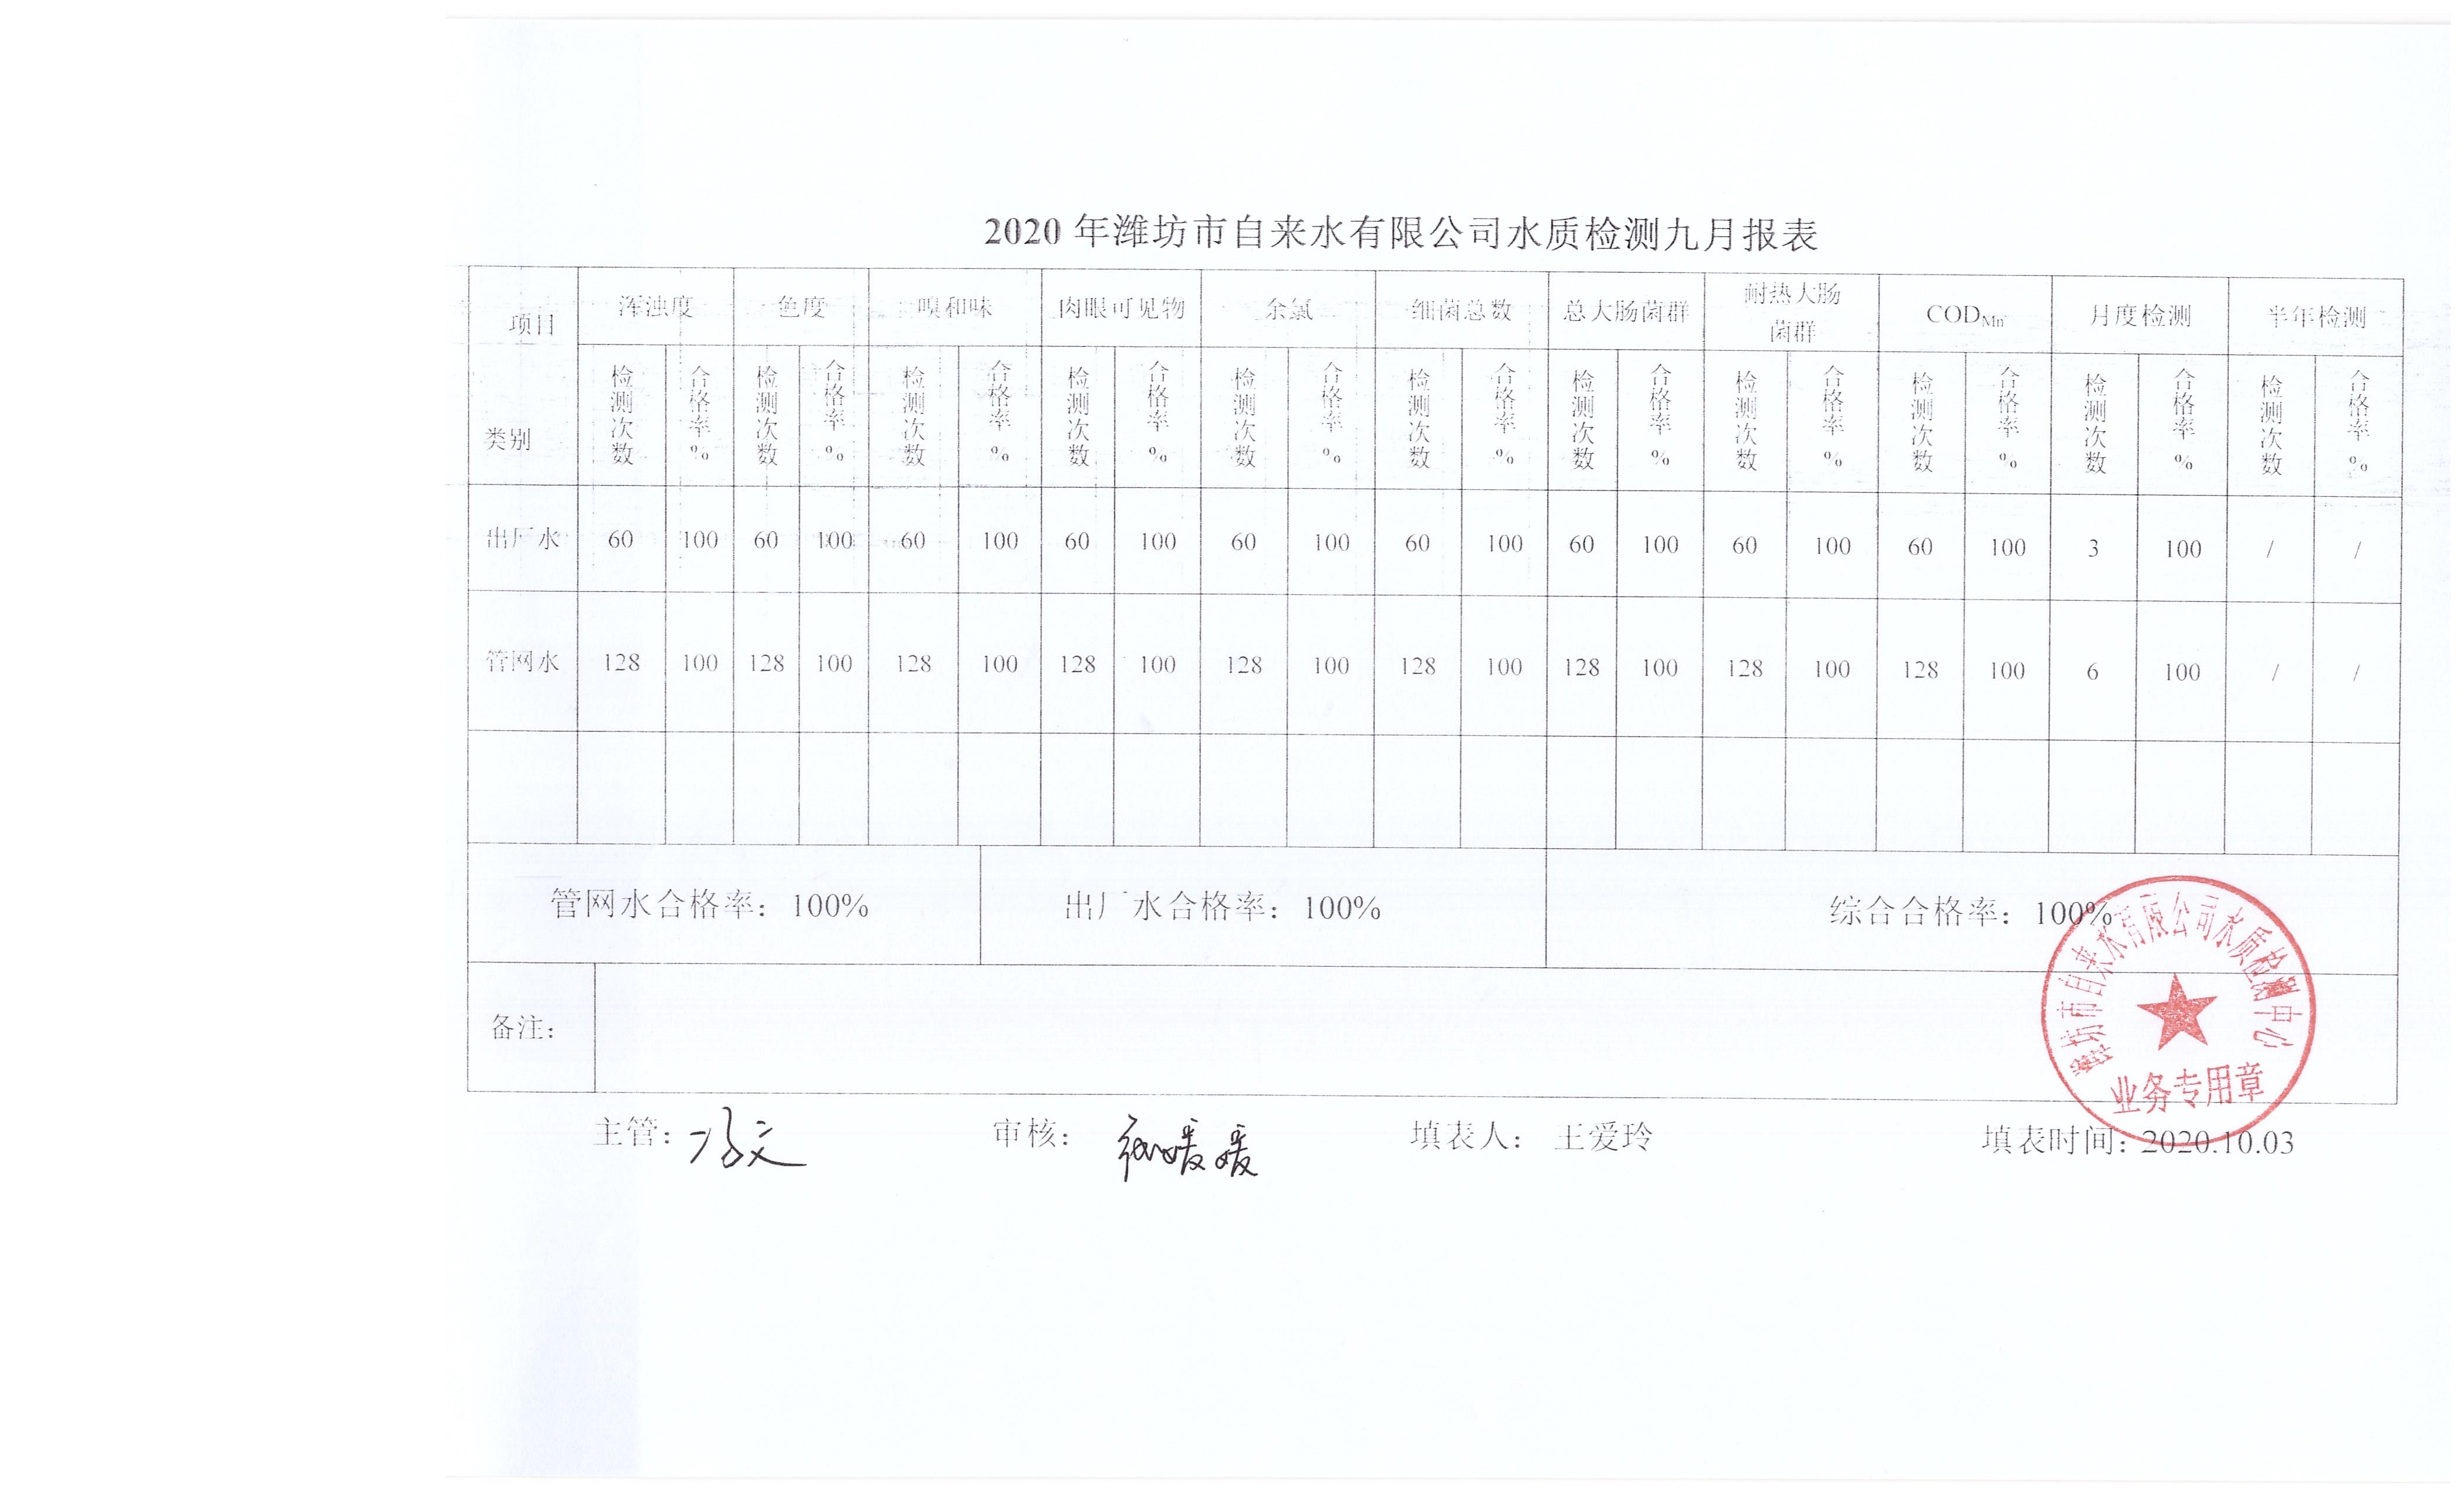 2020 年潍坊市自来水有限公司水质检测九月报表
项目 浑浊度 色度 嗅和味 肉眼可见物 余氯 细菌总数 总大肠菌群 耐热大肠菌群 CODMn 月度检测 半年检测
类别 检测次数 合格率% 检测次数 合格率% 检测次数 合格率% 检测次数 合格率% 检测次数 合格率% 检测次数 合格率% 检测次数 合格率% 检测次数 合格率% 检测次数 合格率% 检测次数 合格率% 检测次数 合格率%
出厂水 60 100 60 100 60 100 60 100 60 100 60 100 60 100 60 100 60 100 3 100 / /
管网水 128 100 128 100 128 100 128 100 128 100 128 100 128 100 128 100 128 100 6 100 / /
管网水合格率：100% 出厂水合格率：100% 综合合格率：100%
备注：
潍坊市自来水有限公司水质检测中心
业务专用章
主管： 审核： 填表人： 王爱玲 填表时间：2020.10.03